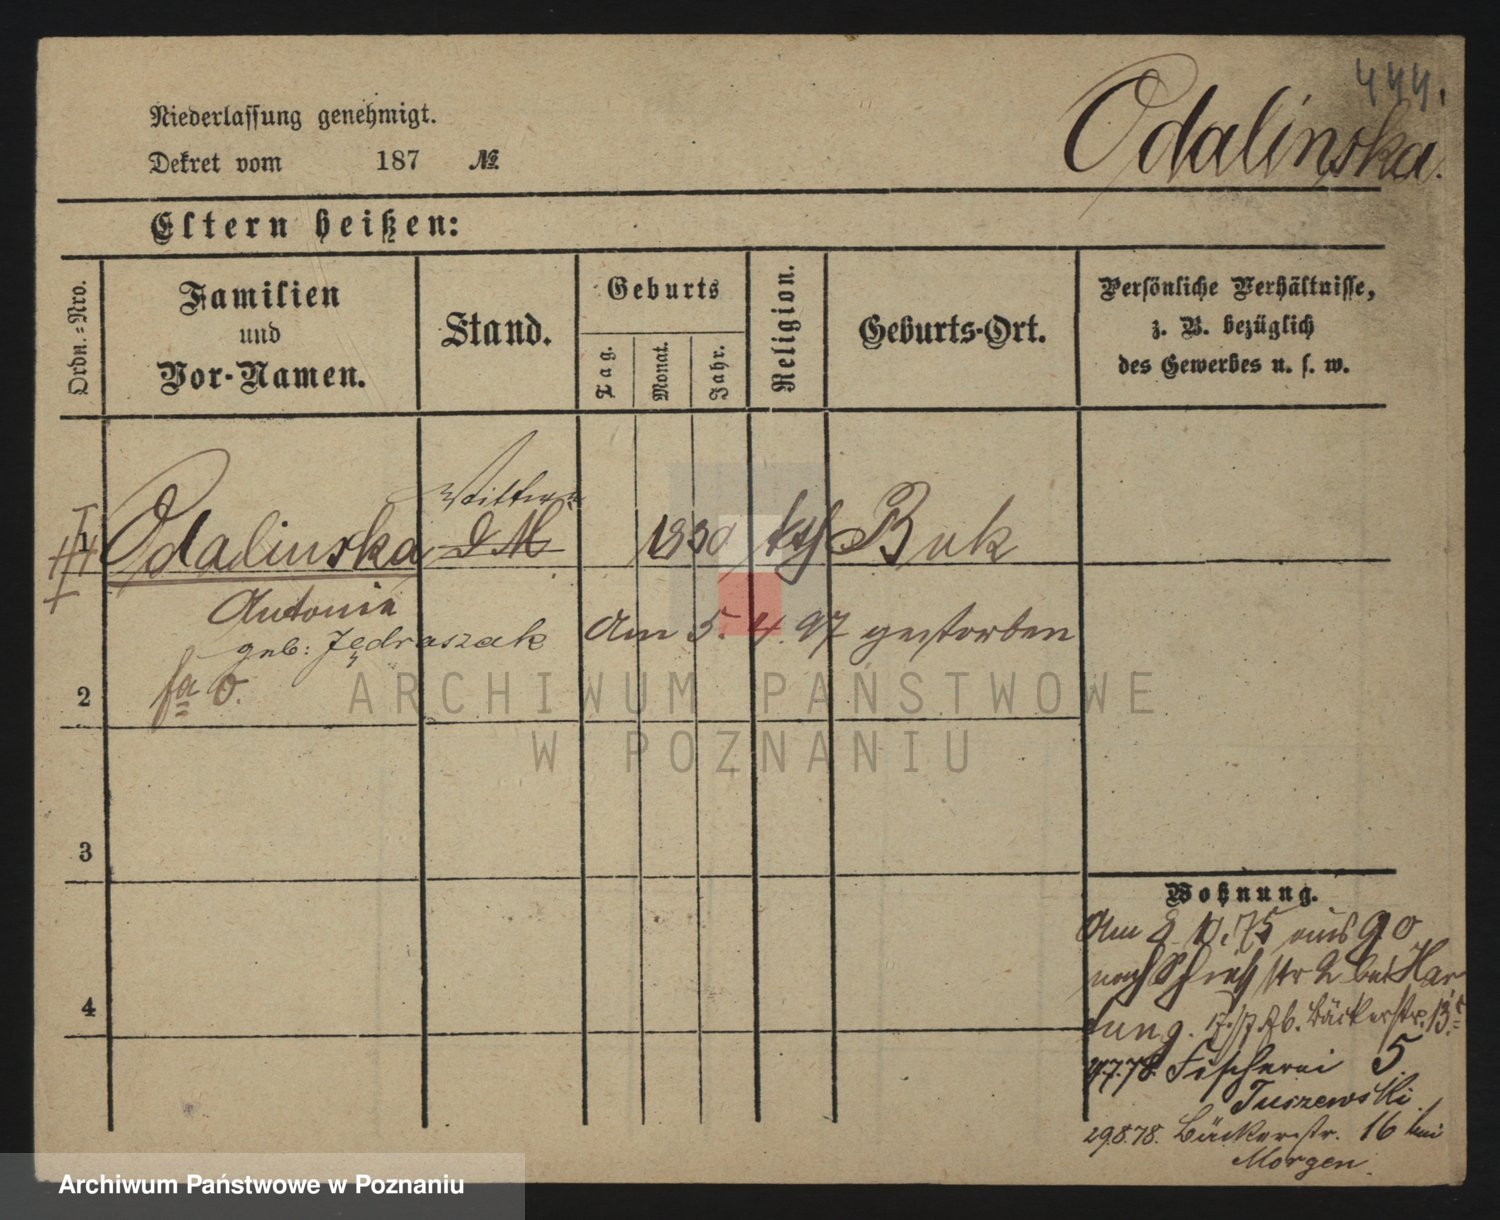 444.
Niederlassung genehmigt.
Odalinska.
Dekret vom 187 №
Eltern heißen:
Ordn.=Nro.
Familien
und
Vor-Namen.
Stand.
Geburts
Tag.
Monat.
Jahr.
Religion.
Geburts-Ort.
Persönliche Verhältnisse,
z. B. bezüglich
des Gewerbes u. s. w.
Wittwe
1 Odalinska D M 1830 kth Buk
Antonia
geb: Jędraszak
Am 5. 4. 97 gestorben
2
3
4
Wohnung.
Am 2 10. 75 aus 90
nach str 2 bei Har
tung. 17./7.76. Bäckerstr. 13.
4.7.78. Fischerei 5
Tuszewski
29.8.78. Bäckerstr. 16 bei
Morgen.
ARCHIWUM PAŃSTWOWE
W POZNANIU
Archiwum Państwowe w Poznaniu